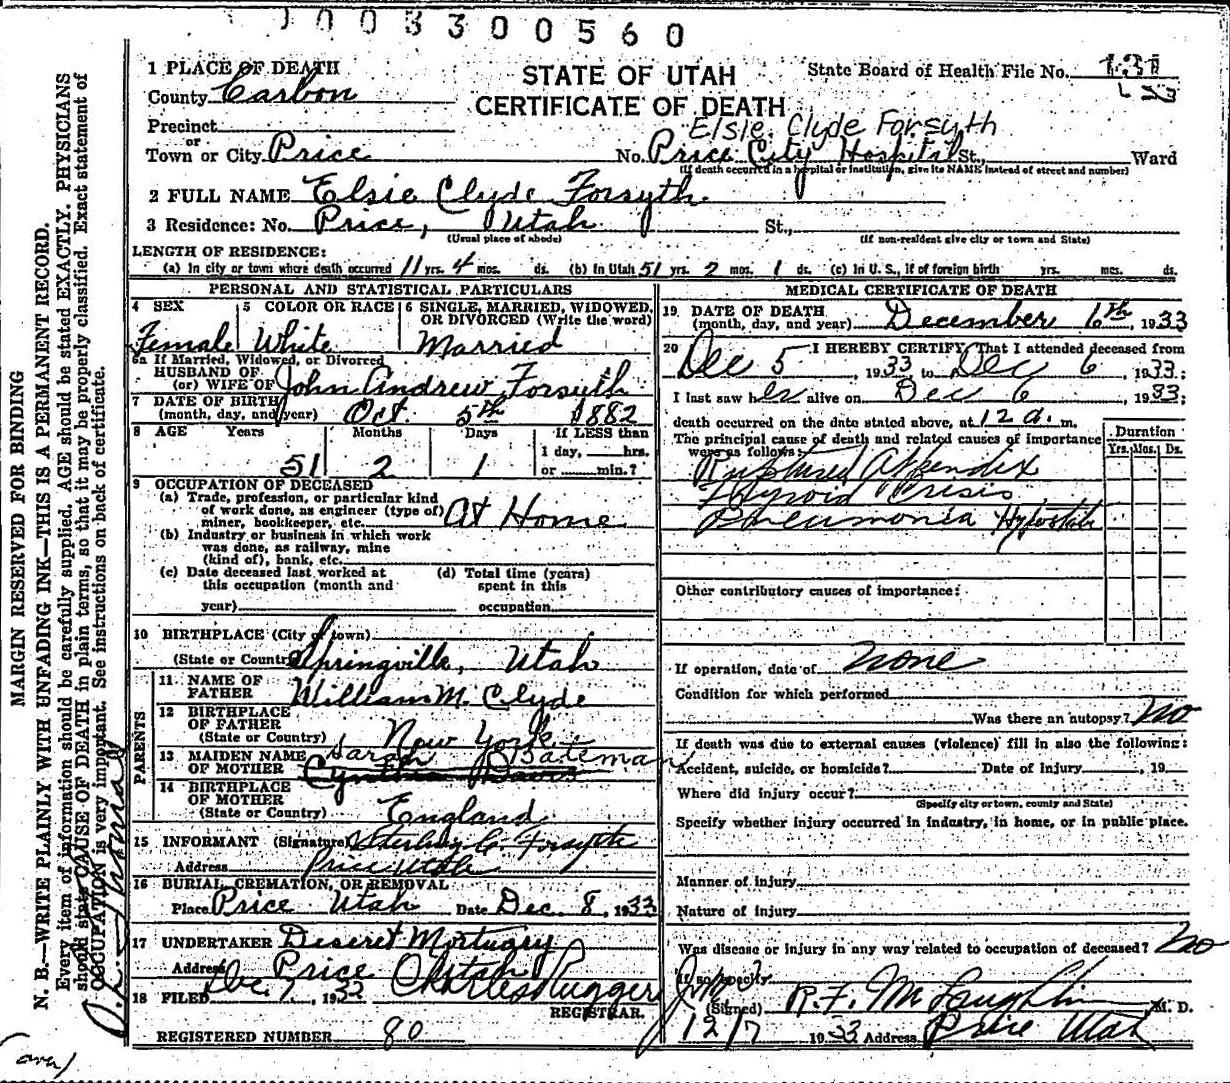 1003300560
STATE OF UTAH
CERTIFICATE OF DEATH
State Board of Health File No. 131
1 PLACE OF DEATH
County Carbon
Precinct
or
Town or City Price
Elsie Clyde Forsyth
No. Price City Hospital St., Ward
(If death occurred in a hospital or institution, give its NAME instead of street and number)
2 FULL NAME Elsie Clyde Forsyth
3 Residence: No. Price, Utah St.,
(Usual place of abode) (If non-resident give city or town and State)
LENGTH OF RESIDENCE:
(a) In city or town where death occurred 11 yrs. 4 mos. ds. (b) In Utah 51 yrs. 2 mos. 1 ds. (c) In U. S., if of foreign birth yrs. mos. ds.
PERSONAL AND STATISTICAL PARTICULARS
4 SEX
Female
5 COLOR OR RACE
White
6 SINGLE, MARRIED, WIDOWED, OR DIVORCED (Write the word)
Married
6a If Married, Widowed, or Divorced
HUSBAND OF
(or) WIFE OF John Andrew Forsyth
7 DATE OF BIRTH
(month, day, and year) Oct. 5th 1882
8 AGE Years Months Days If LESS than
1 day, hrs.
51 2 1 or min.?
9 OCCUPATION OF DECEASED
(a) Trade, profession, or particular kind
of work done, as engineer (type of)
miner, bookkeeper, etc. At Home
(b) Industry or business in which work
was done, as railway, mine
(kind of), bank, etc.
(c) Date deceased last worked at
this occupation (month and
year)
(d) Total time (years)
spent in this
occupation
10 BIRTHPLACE (City or town)
(State or Country) Springville, Utah
PARENTS
11 NAME OF
FATHER William M. Clyde
12 BIRTHPLACE
OF FATHER
(State or Country) New York
13 MAIDEN NAME
OF MOTHER Sarah Bateman
Cynthia Davis
14 BIRTHPLACE
OF MOTHER
(State or Country) England
15 INFORMANT (Signature) Sterling C. Forsyth
Address Price Utah
16 BURIAL, CREMATION, OR REMOVAL
Place Price Utah Date Dec. 8, 1933
17 UNDERTAKER Deseret Mortuary
Address Price Utah
18 FILED Dec. 7, 1933 Charles Ruggeri
REGISTRAR.
REGISTERED NUMBER 80
MEDICAL CERTIFICATE OF DEATH
19 DATE OF DEATH
(month, day, and year) December 6th, 1933
20 I HEREBY CERTIFY, That I attended deceased from
Dec 5, 1933 to Dec 6, 1933;
I last saw her alive on Dec 6, 1933;
death occurred on the date stated above, at 12 a. m.
The principal cause of death and related causes of importance
were as follows:
Duration
Yrs. Mos. Ds.
Ruptured Appendix
Thyroid Crisis
Pneumonia Hypostatic
Other contributory causes of importance:
If operation, date of none
Condition for which performed
Was there an autopsy? No
If death was due to external causes (violence) fill in also the following:
Accident, suicide, or homicide? Date of injury , 19
Where did injury occur?
(Specify city or town, county and State)
Specify whether injury occurred in industry, in home, or in public place.
Manner of injury
Nature of injury
Was disease or injury in any way related to occupation of deceased? No
If so, specify
(Signed) R. F. McLaughlin M. D.
12/7 1933 Address Price Utah
MARGIN RESERVED FOR BINDING
N. B.—WRITE PLAINLY WITH UNFADING INK—THIS IS A PERMANENT RECORD.
Every item of information should be carefully supplied. AGE should be stated EXACTLY. PHYSICIANS
should state CAUSE OF DEATH in plain terms, so that it may be properly classified. Exact statement of
OCCUPATION is very important. See instructions on back of certificate.
(over)